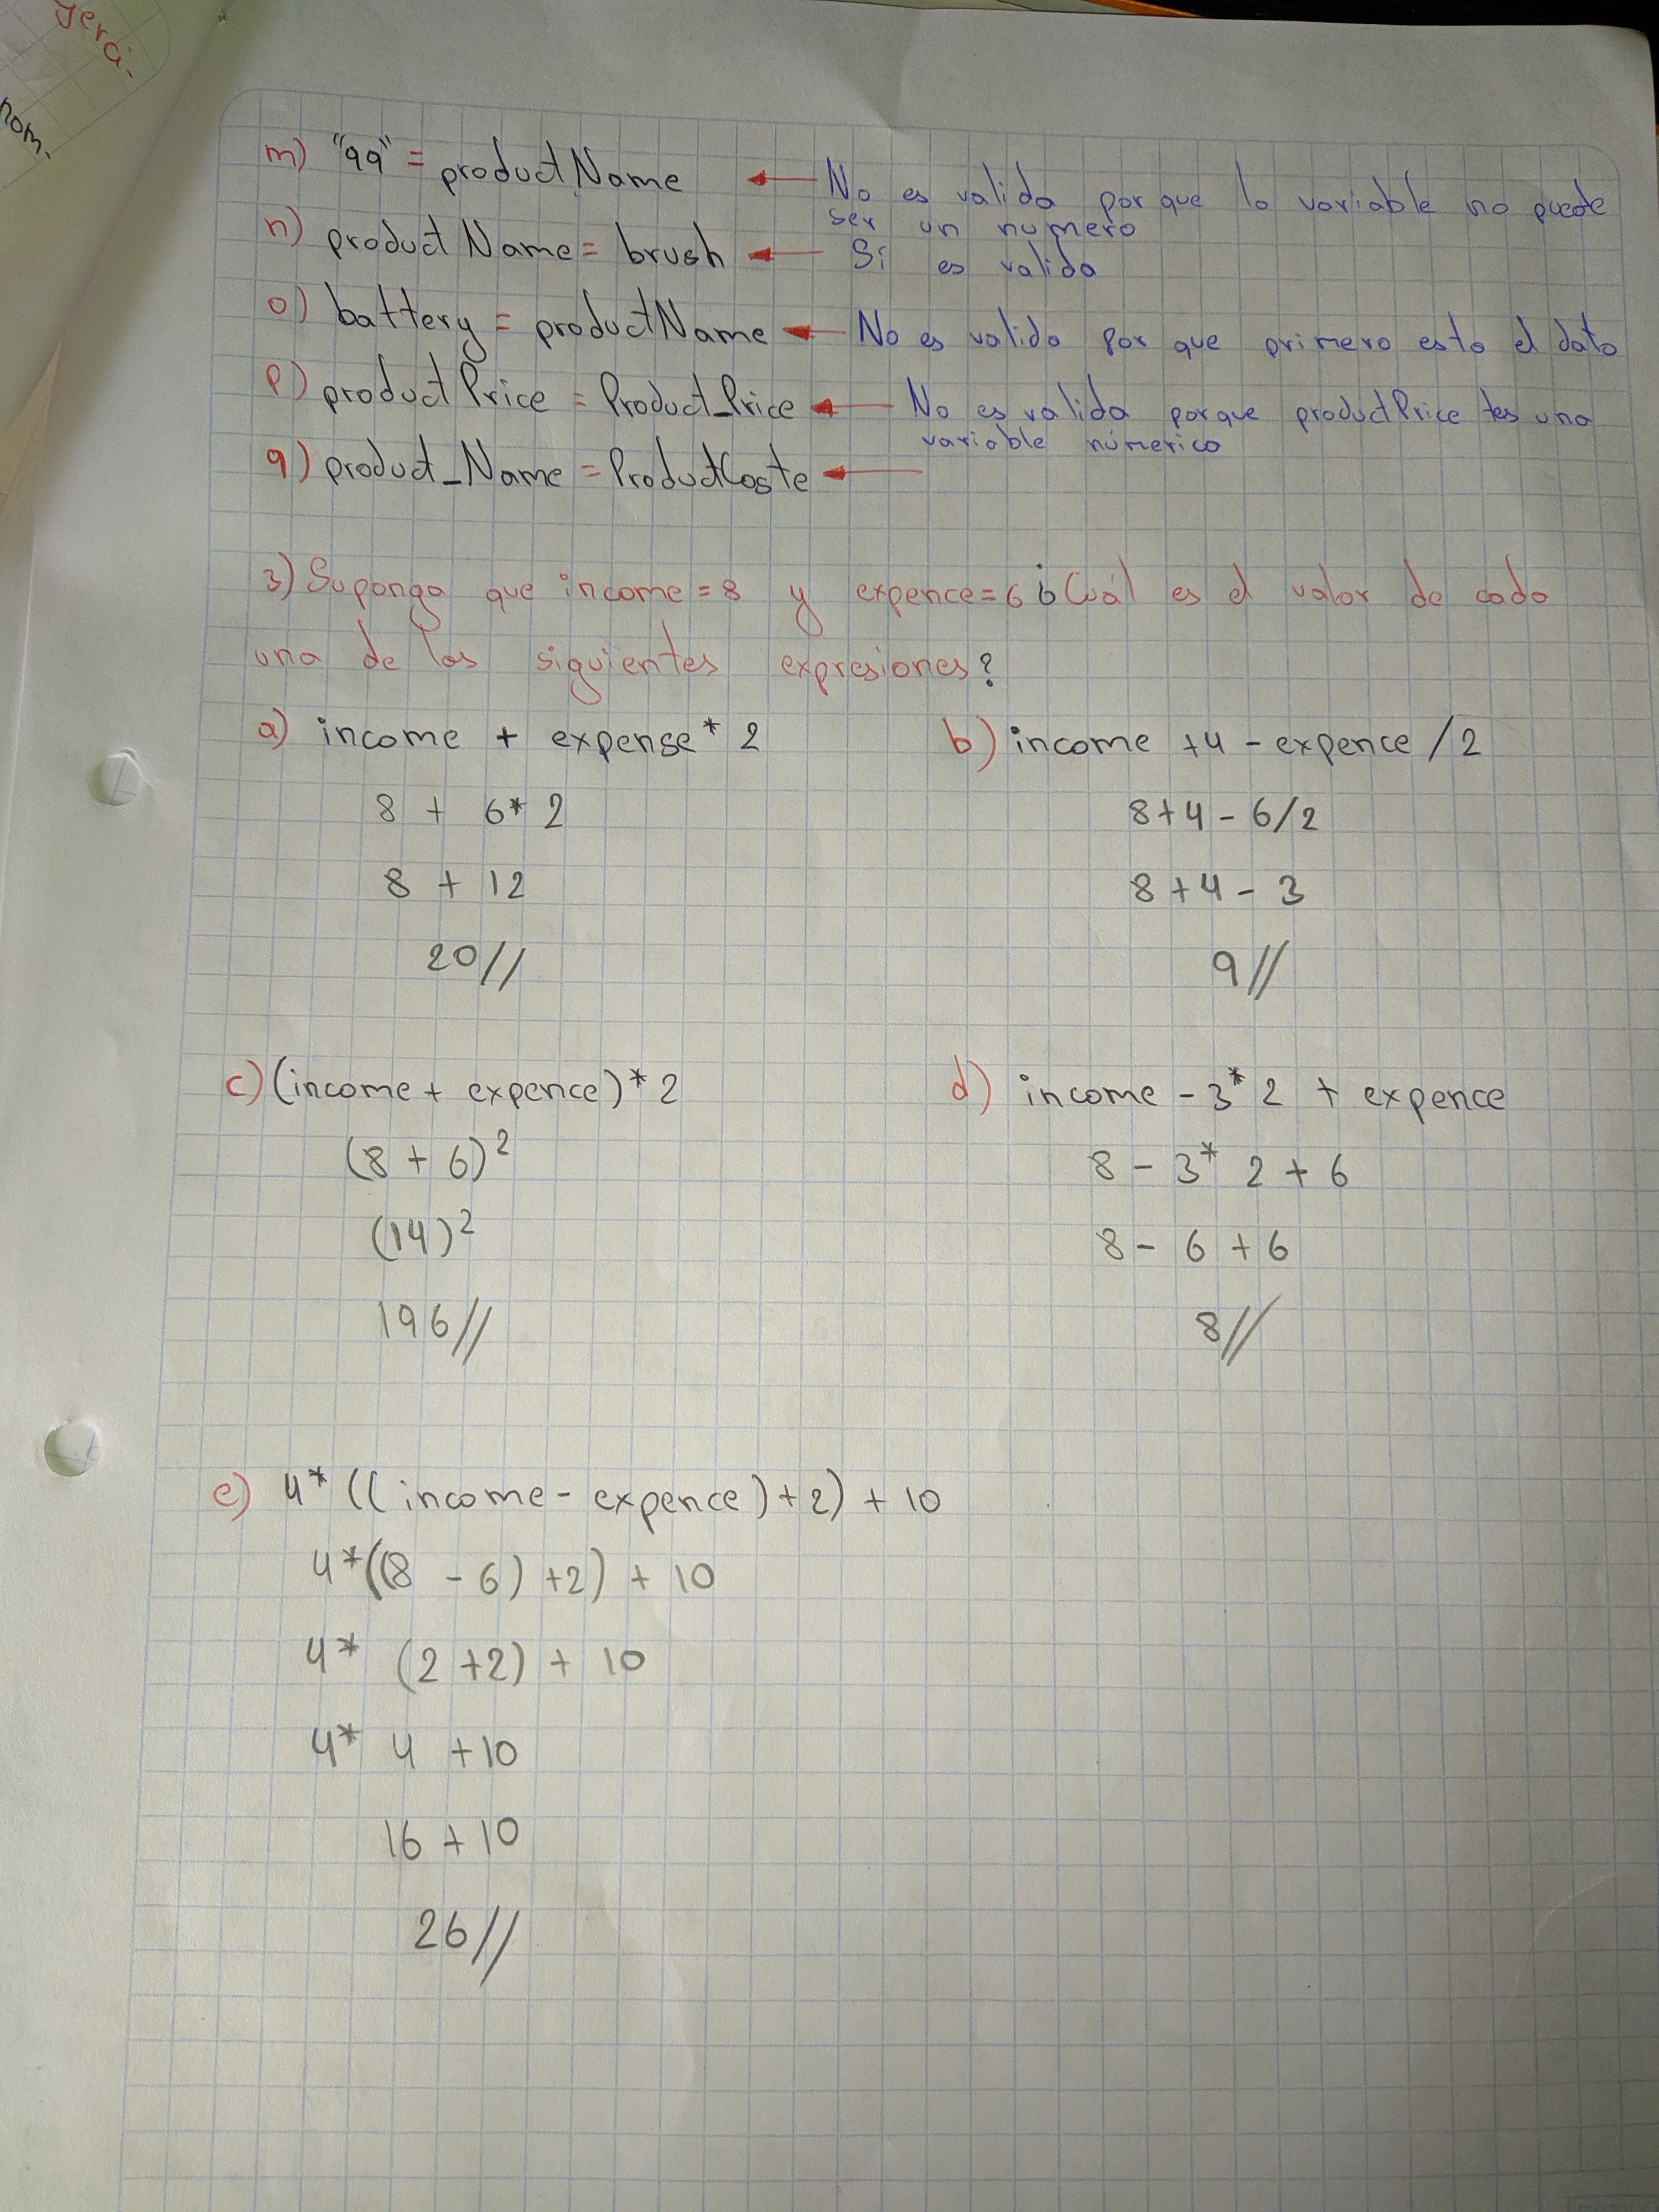 yerci-
nom.
m) "99" = productName ← No es valida por que la variable no puede
ser un numero
n) productName = brush ← Si es valida
o) battery = productName ← No es valida por que primero esta el dato
p) productPrice = Product_Price ← No es valida porque productPrice es una
variable númerica
q) product_Name = ProductCoste ←
3) Suponga que income = 8 y expence = 6 ¿Cuál es el valor de cada
una de las siguientes expresiones?
a) income + expense * 2
8 + 6 * 2
8 + 12
20//
b) income + 4 - expence / 2
8 + 4 - 6/2
8 + 4 - 3
9//
c) (income + expence) * 2
(8 + 6)²
(14)²
196//
d) income - 3 * 2 + expence
8 - 3 * 2 + 6
8 - 6 + 6
8//
e) 4 * ((income - expence) + 2) + 10
4 * ((8 - 6) + 2) + 10
4 * (2 + 2) + 10
4 * 4 + 10
16 + 10
26//